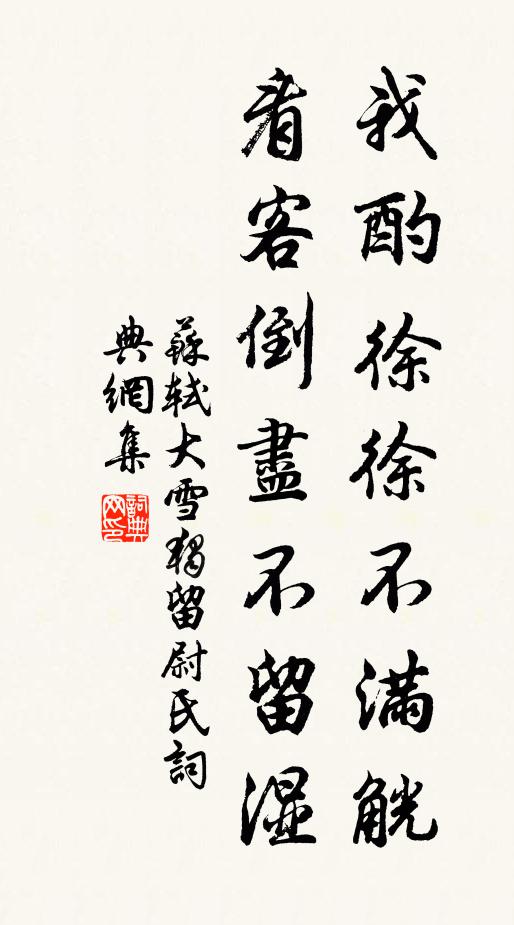 我酌徐徐不满觥
看客倒盡不留湿
蘇軾大雪獨留尉氏詞
典網集
詞典网印